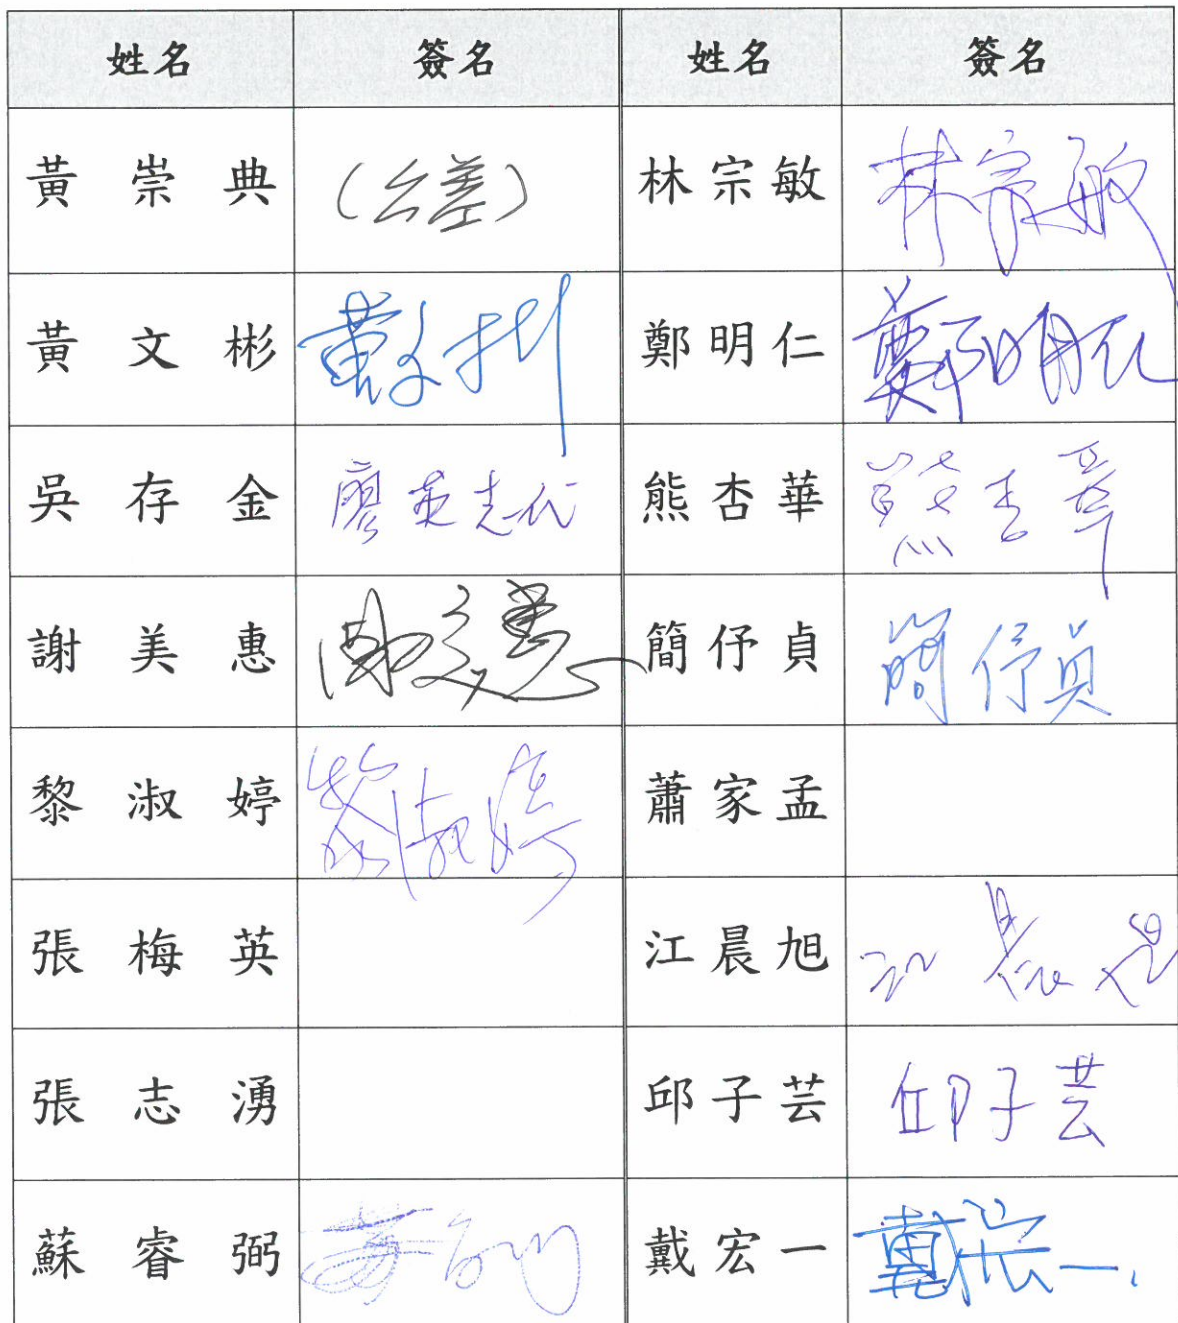 姓名 簽名 姓名 簽名
黃崇典 (公差) 林宗敏 林宗敏
黃文彬 黃文彬 鄭明仁 鄭明仁
吳存金 廖英志代 熊杏華 熊杏華
謝美惠 謝美惠 簡伃貞 簡伃貞
黎淑婷 黎淑婷 蕭家孟
張梅英 江晨旭 江晨旭
張志湧 邱子芸 邱子芸
蘇睿弼 戴宏一 戴宏一